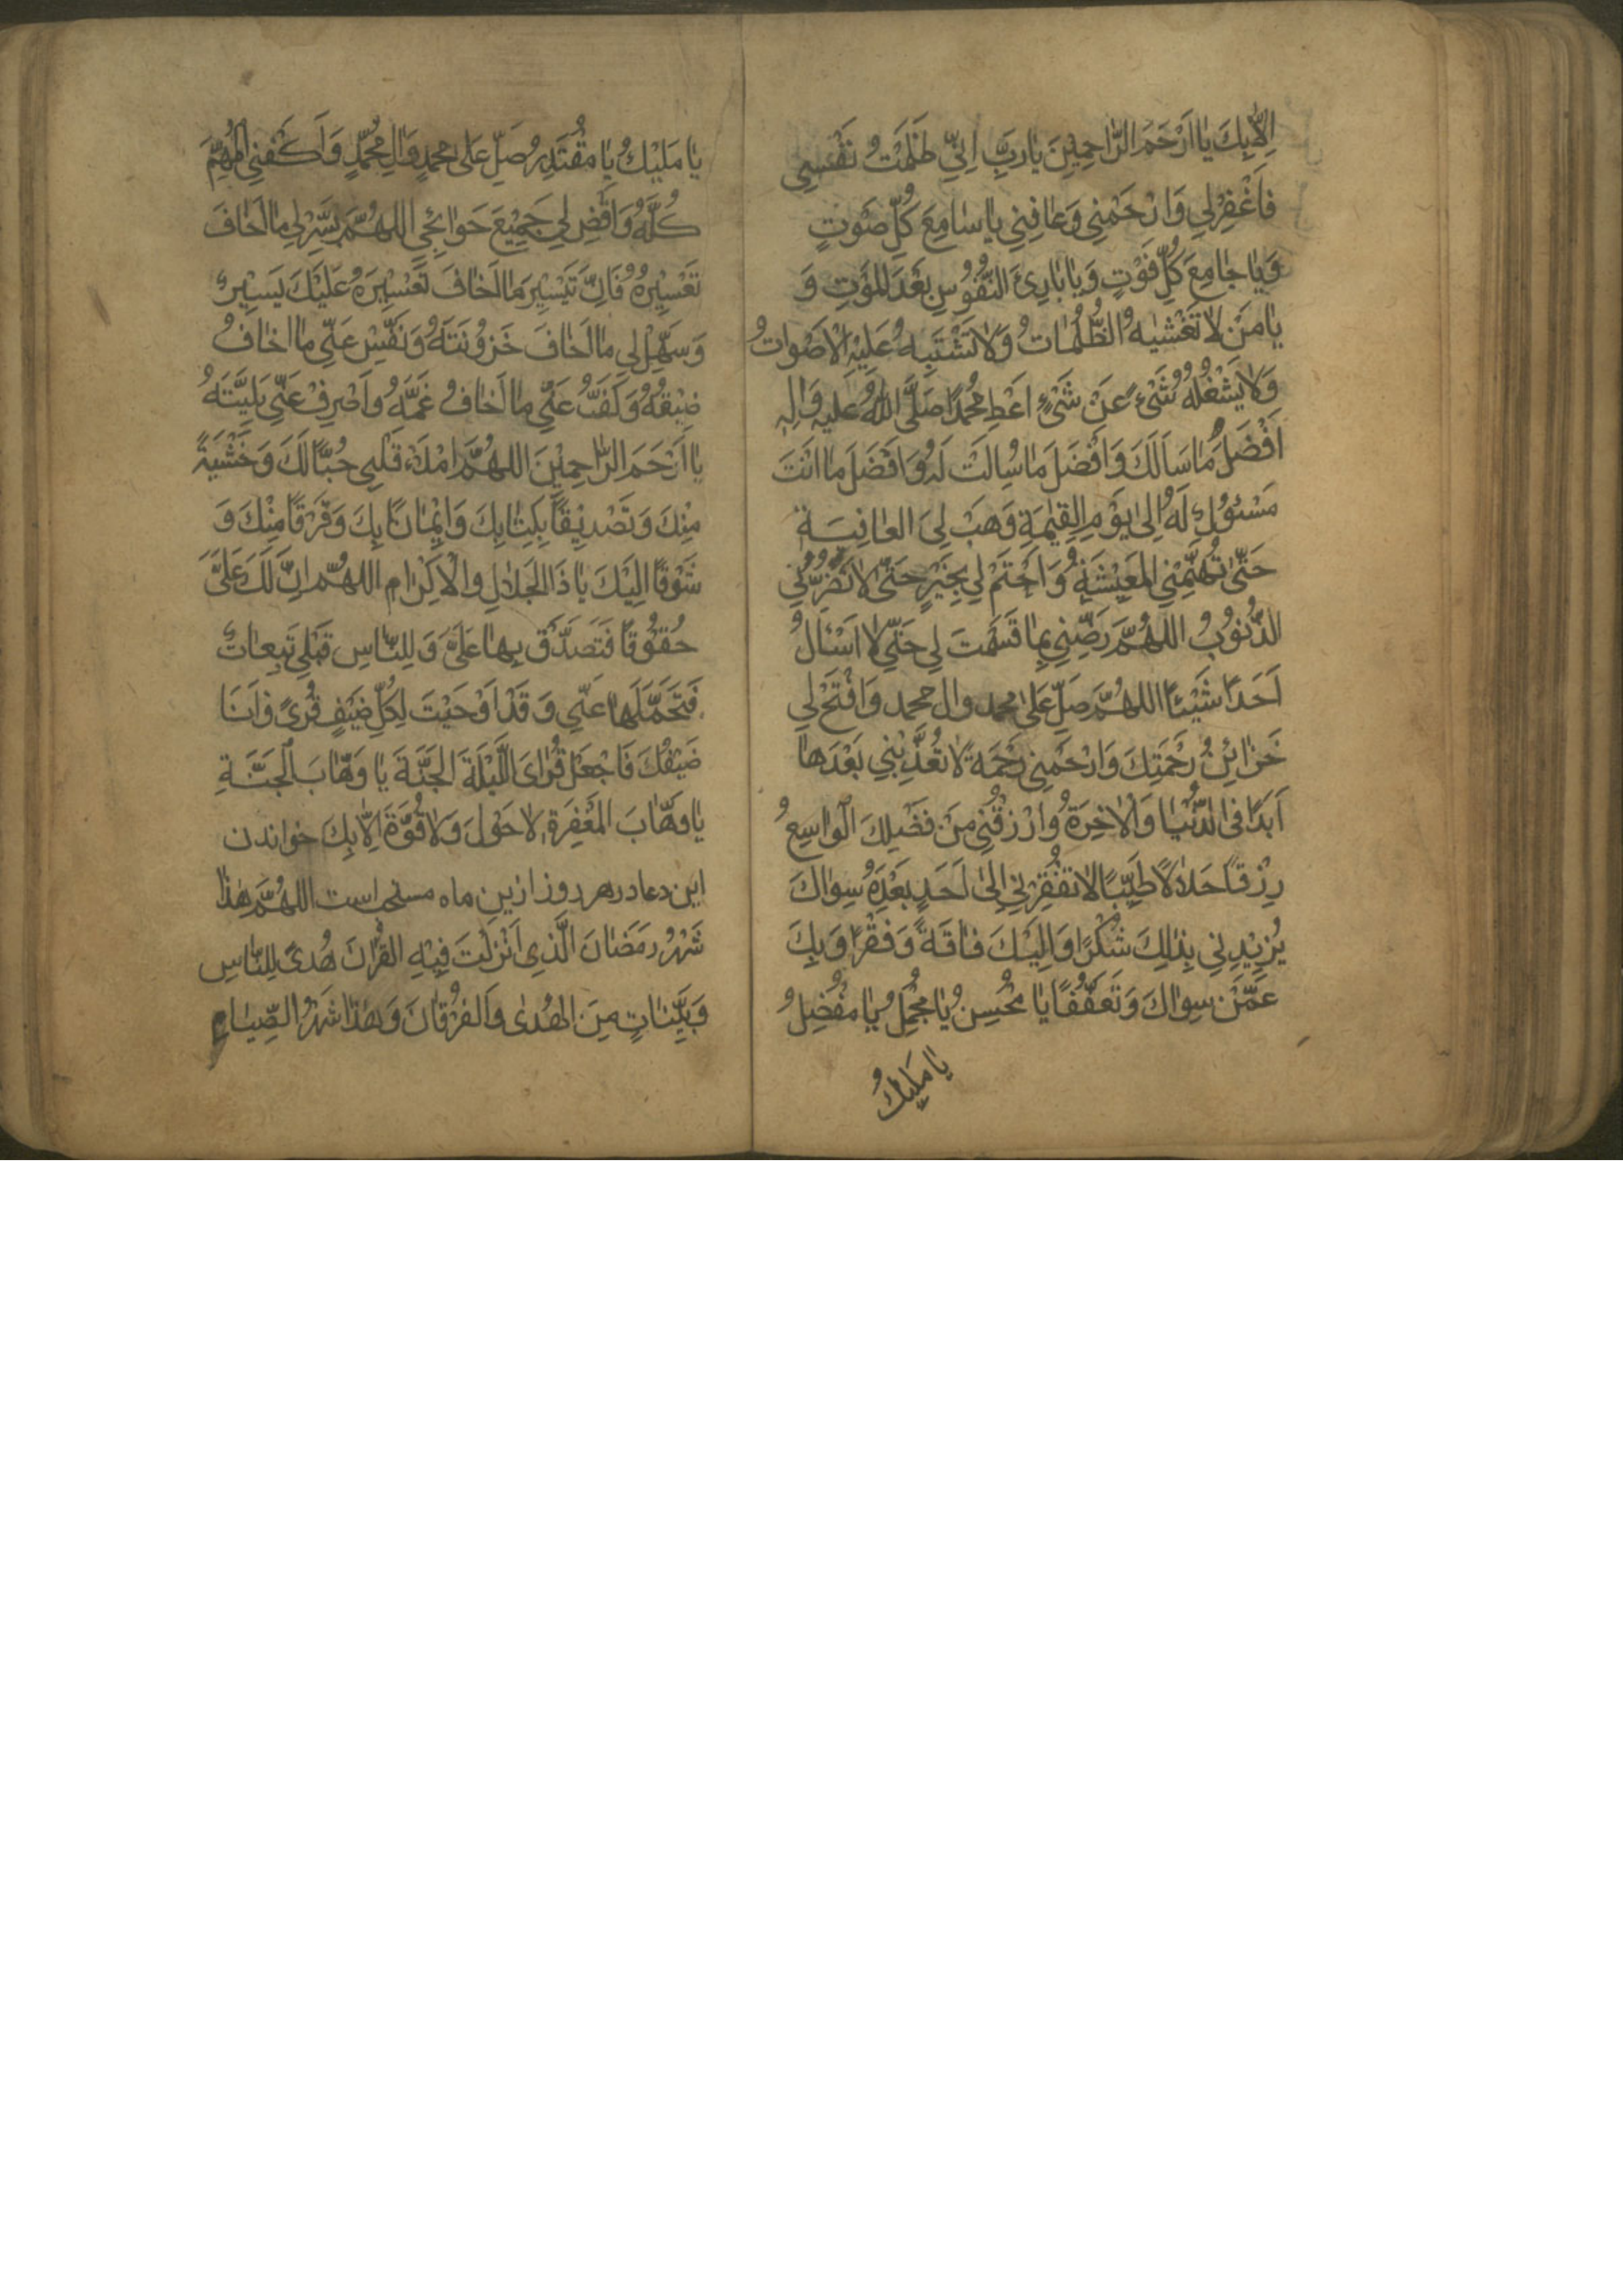 اِلّا بِكَ يا اَرْحَمَ الرّاحِمِينَ يا رَبِّ اِنّي ظَلَمْتُ نَفْسي
فَاغْفِرْلي وَارْحَمْنِي وَعافِنِي يا سامِعَ كُلِّ صَوْتٍ
وَيا جامِعَ كُلِّ فَوْتٍ وَيا بارِئَ النُّفُوسِ بَعْدَ المَوْتِ وَ
يا مَنْ لا تَغْشيهُ الظُّلُماتُ وَلا تَشْتَبِهُ عَلَيْهِ الْاَصْواتُ
وَلا يَشْغُلُهُ شَيْءٌ عَنْ شَيْءٍ اَعْطِ مُحَمَّدًا صَلَّى اللهُ عَلَيهِ وَالِهِ
اَفْضَلَ ما سَاَلَكَ وَاَفْضَلَ ما سُئِلَتْ لَهُ وَاَفْضَلَ ما اَنْتَ
مَسْئُولٌ لَهُ اِلى يَوْمِ الْقِيمَةِ وَهَبْ لِيَ العافِيَةَ
حَتّى تُهَنِّئَنِي المَعِيشَةُ وَاخْتِمْ لِي بِخَيْرٍ حَتّى لا تَضُرَّني
الذُّنُوبُ اللهُمَّ رَضِّنِي بِما قَسَمْتَ لِي حَتّى لا اَسْئَالُ
اَحَدًا شَيْئًا اللهُمَّ صَلِّ عَلى محمد وال محمد وَافْتَحْ لي
خَزائِنُ رَحْمَتِكَ وَارْحَمْنِي رَحْمَةً لا تُعَذِّبْنِي بَعْدَها
اَبَدًا فِى الدُّنْيا وَالْاخِرَةُ وَارْزُقْنِي مِنْ فَضْلِكَ الْواسِعُ
رِزْقًا حَلالاً طَيِّبًا لا تُفْقِرُني اِلى اَحَدٍ بَعْدَهُ سِواكَ
يُزِيْدِني بِذلِكَ شُكْرًا وَاِلَيْكَ فاقَةً وَفَقْرًا وَبِكَ
عَمَّنْ سِواكَ وَتَعَفُّفًا يا مُحْسِنُ يا مُجْمِلُ يا مُفْضِلُ
يا مَلِيكُ
يا مَلِيْكُ يا مُقْتَدِرُ صَلِّ عَلى محمدٍ وَالِ مُحَمَّدٍ وَاَكْفِنِي المُهِمَّ
كُلَّهُ وَاقْضِ لي جَمِيْعَ حَوائِجِي اللهُمَّ يَسِّرْ لي ما اَخافَ
تَعْسِيْرَهُ فَاِنَّ تَيْسِيْرَ مَا اَخافَ تَعْسِيْرَهُ عَلَيْكَ يَسِيْرٌ
وَسَهِّلْ لي ما اَخافَ حَزُوْنَتَهُ وَنَفِّسْ عَنّي ما اَخافُ
ضِيْقَهُ وَكَفَّ عَنّي ما اَخافُ غَمَّهُ وَاَصْرِفْ عَنّي بَلِيَّتَهُ
يا اَرْحَمَ الرّاحِمِيْنَ اللهُمَّ امْلَاْ قَلْبي حُبًّا لَكَ وَخَشْيَةً
مِنْكَ وَتَصْدِيْقًا بِكِتابِكَ وَاِيْمانًا بِكَ وَفَرَقًا مِنْكَ وَ
شَوْقًا اِلَيْكَ يا ذَا الجَلالِ والْاِكْرامِ اللهُمَّ اِنَّ لَكَ عَلَيَّ
حُقُوْقًا فَتَصَدَّقْ بِها عَلَيَّ وَلِلنّاسِ قِبَلِي تَبِعاتٌ
فَتَحَمَّلَها عَنّي وَقَدْ اَوْحَيْتَ لِكُلِّ ضَيْفٍ قُرىً وَاَنَا
ضَيْفُكَ فَاجْعَلْ قُرايَ اللَّيْلَةَ الجَنَّةَ يا وَهّابَ الْجَنَّةِ
يا وَهّابَ المَغْفِرَةِ لا حَوْلَ وَلا قُوَّةَ اِلّا بِكَ خواندن
اين دعا در هر روز ازين ماه مستحب است اللهُمَّ هذا
شَهْرُ رَمَضانَ الَّذِي اَنْزَلْتَ فِيْهِ القُرْانَ هُدىً لِلنّاسِ
وَبَيِّناتٍ مِنَ الهُدى وَالْفُرْقانَ وَهذا شَهْرُ الصِّيامِ